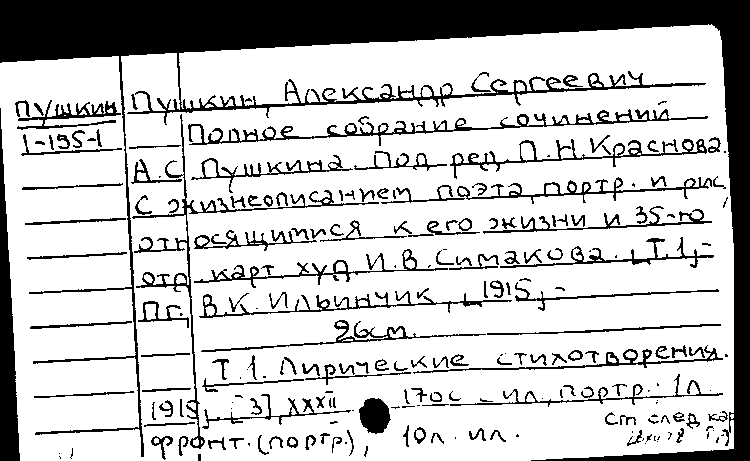 Пушкин Пушкин, Александр Сергеевич
I-195-1 Полное собрание сочинений
А.С. Пушкина. Под ред. П.Н. Краснова.
С жизнеописанием поэта, портр. и рис.,
относящимися к его жизни и 35-ю
отд. карт. худ. И.В. Симакова. [Т.1]-
Пг., В.К. Ильинчик, [1915]-
26см.
[Т.1. Лирические стихотворения.
1915]. [3], XXXII 170с. ил., портр.; 1л.
фронт. (портр.), 10л. ил.
См след кар